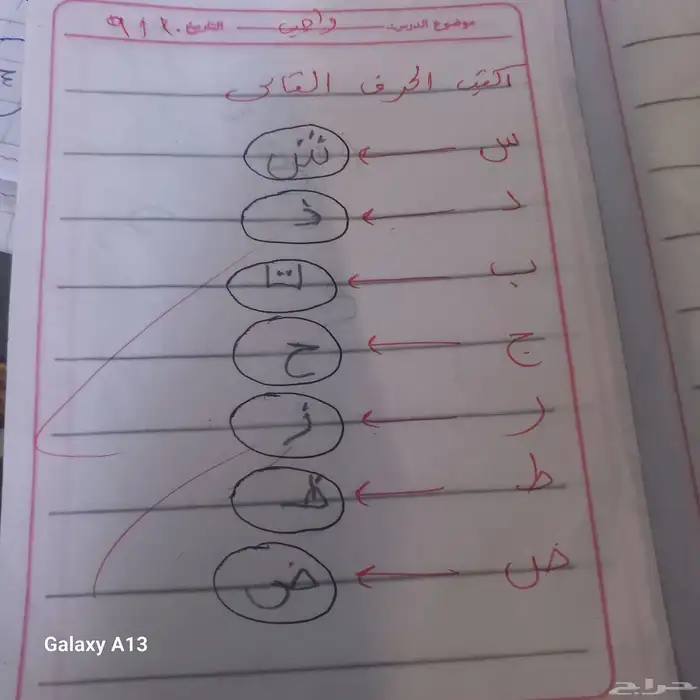 موضوع الدرس: واجب التاريخ ٩ / ٢٠
اكتب الحرف التالي
س ← ش
د ← ذ
ب ← ت
ج ← ح
ر ← ز
ط ← ظ
ض ← ض
Galaxy A13
حراج